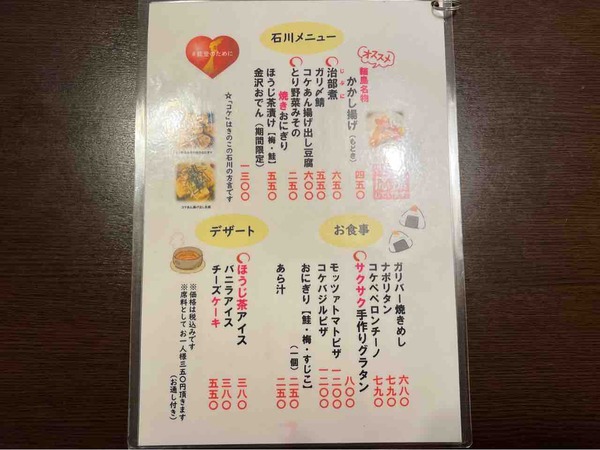 石川メニュー
#能登のために
オススメ
輪島名物
かかし揚げ(もどき) 四五〇
じぶに
治部煮 六五〇
ガリ〆鯖 五五〇
コケあん揚げ出し豆腐 六〇〇
とり野菜みその
焼きおにぎり 二五〇
ほうじ茶漬け【梅・鮭】 五五〇
金沢おでん(期間限定) 一三〇〇
☆「コケ」はきのこの石川の方言です
お食事
ガリバー焼きめし 六八〇
ナポリタン 七九〇
コケペペロンチーノ 七九〇
サクサク手作りグラタン 八〇〇
モッツァトマトピザ 一二〇〇
コケバジルピザ 一二〇〇
おにぎり【鮭・梅・すじこ】
(一個) 二五〇
あら汁 二五〇
デザート
ほうじ茶アイス 三八〇
バニラアイス 三八〇
チーズケーキ 五五〇
※価格は税込みです
※席料として お一人様三五〇円頂きます
(お通し付き)